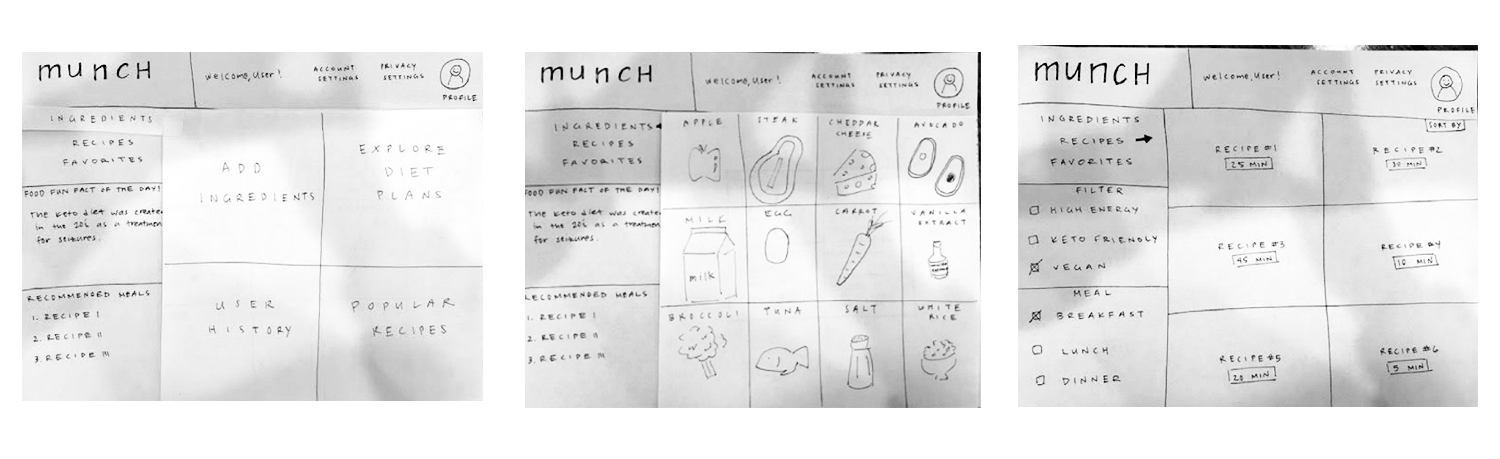 munch
welcome, user!
ACCOUNT
SETTINGS
PRIVACY
SETTINGS
PROFILE
INGREDIENTS
RECIPES
FAVORITES
FOOD FUN FACT OF THE DAY!
The keto diet was create
in the 20's as a treatmen
for seizures.
RECOMMENDED MEALS
1. RECIPE I
2. RECIPE II
3. RECIPE III
ADD
INGREDIENTS
EXPLORE
DIET
PLANS
USER
HISTORY
POPULAR
RECIPES
munch
welcome, user!
ACCOUNT
SETTINGS
PRIVACY
SETTINGS
PROFILE
INGREDIENTS
RECIPES
FAVORITES
FOOD FUN FACT OF THE DAY!
The keto diet was create
in the 20's as a treatmen
for seizures.
RECOMMENDED MEALS
1. RECIPE I
2. RECIPE II
3. RECIPE III
APPLE
STEAK
CHEDDAR
CHEESE
AVOCADO
MILK
milk
EGG
CARROT
VANILLA
EXTRACT
BROCCOLI
TUNA
SALT
WHITE
RICE
munch
welcome, user!
ACCOUNT
SETTINGS
PRIVACY
SETTINGS
PROFILE
INGREDIENTS
RECIPES
FAVORITES
FILTER
HIGH ENERGY
KETO FRIENDLY
VEGAN
MEAL
BREAKFAST
LUNCH
DINNER
SORT BY
RECIPE #1
25 MIN
RECIPE #2
30 MIN
RECIPE #3
45 MIN
RECIPE #4
10 MIN
RECIPE #5
20 MIN
RECIPE #6
5 MIN